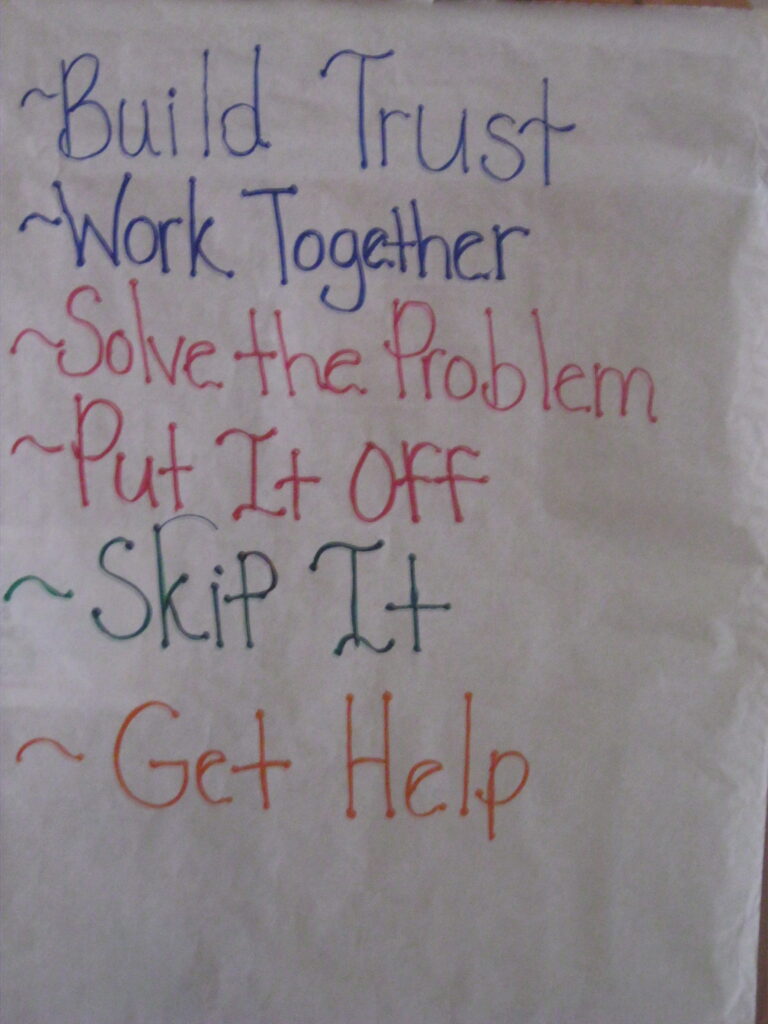 ~Build Trust
~Work Together
~Solve the Problem
~Put It Off
~Skip It
~Get Help